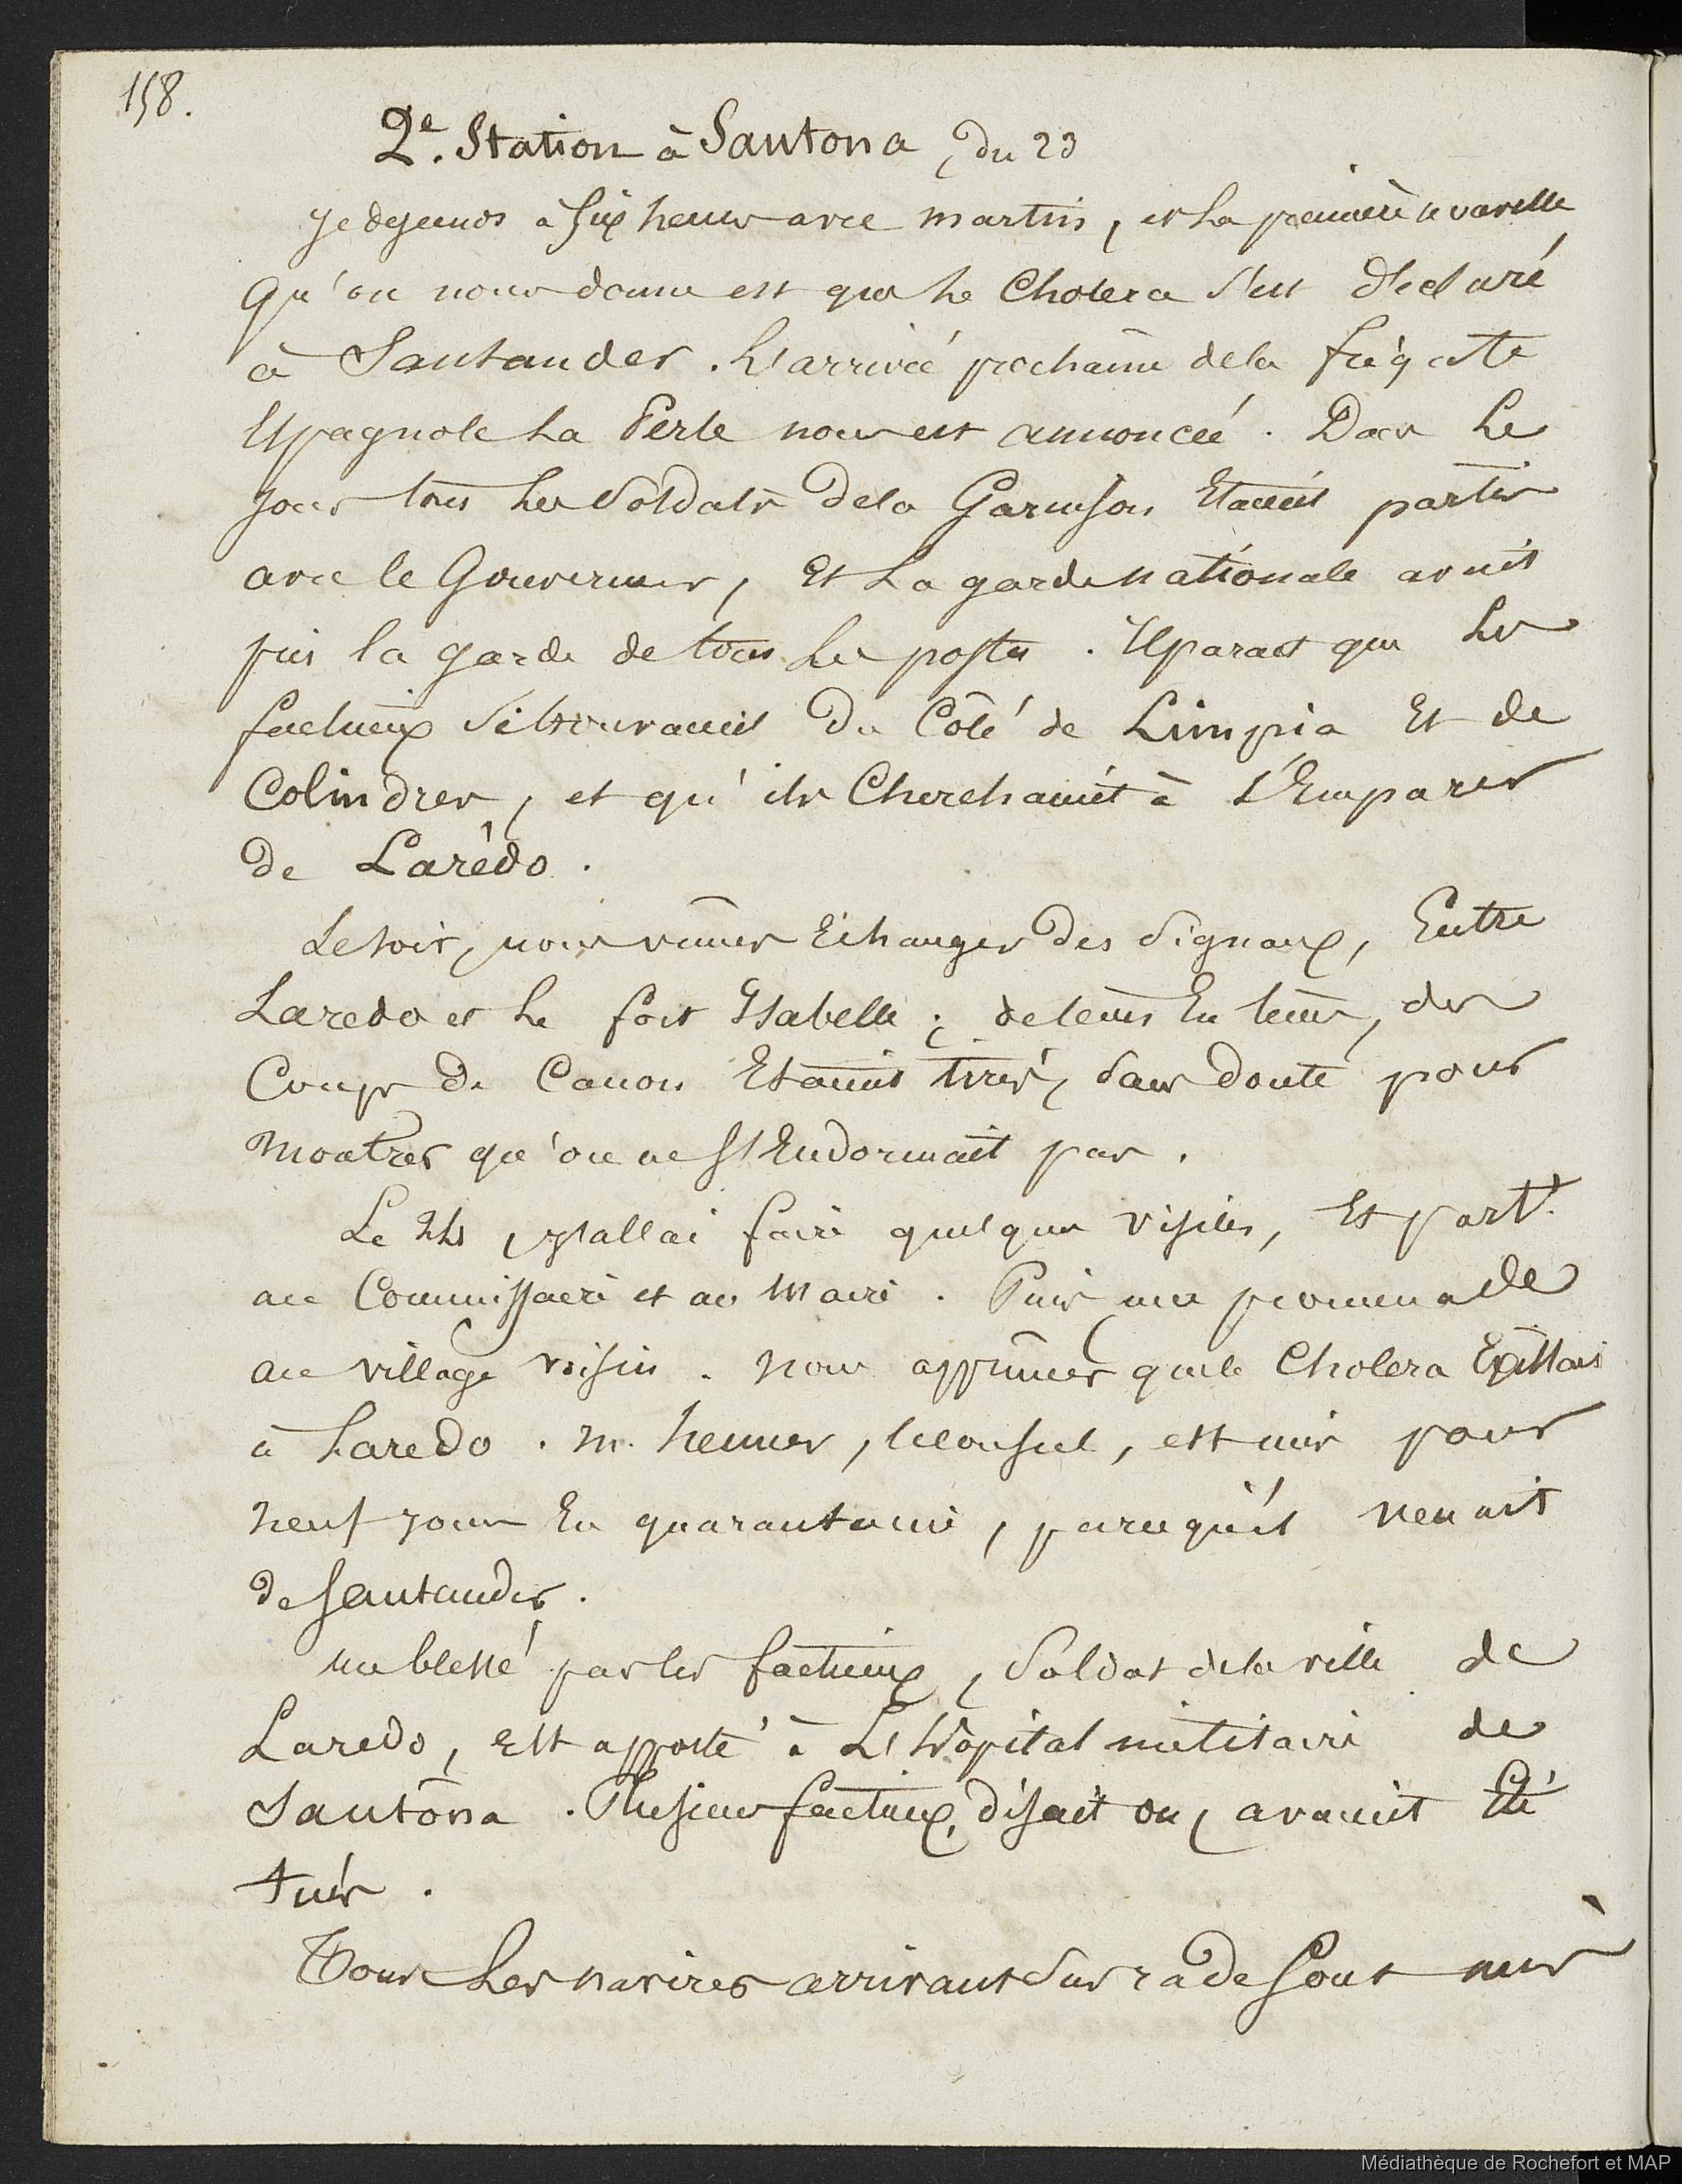 158.
2e. Station à Santona, du 23
Je dejeunos à six heures avec martin, et La première nouvelle
Qu'on nous donne est que Le Cholera s'est déclaré
à Santander. L'arrivée prochaine de la frégate
Espagnole La Perle nous est annoncée. Dans Le
jour tous Les Soldats de la Garnison Etaient partis
avec le Gouverneur, Et La garde nationale avait
pris la garde de tous Les postes. Il parait que Les
factieux se trouvaient Du Côté de Limpia Et de
Colindres, et qu'ils Cherchaient à S'Emparer
de Larédo.
Le soir, nous vimes Echanger des Signaux, Entre
Laredo et Le fort Isabelle; de tems En tems, des
Coups de Canon Etaient tirés, Sans doute pour
montrer qu'on ne S'Endormait pas.
Le 24, j'allai faire quelques visites, Et part.t
au Commissaire et au Maire. Puis une promenade
au village voisin. Nous apprimes que le Cholera Existais
à Laredo. M. hemer, le Consul, est mis pour
neuf jours En quarantaine, parce qu'il venait
de Santander.
un blessé par les factieux, Soldat de la ville de
Laredo, Est apporté à L'hôpital militaire de
Santôna. Plusieurs factieux, disait on, avaient Eté
tués.
Tous Les navires arrivant Sur rade Sont mis
Médiathèque de Rochefort et MAP